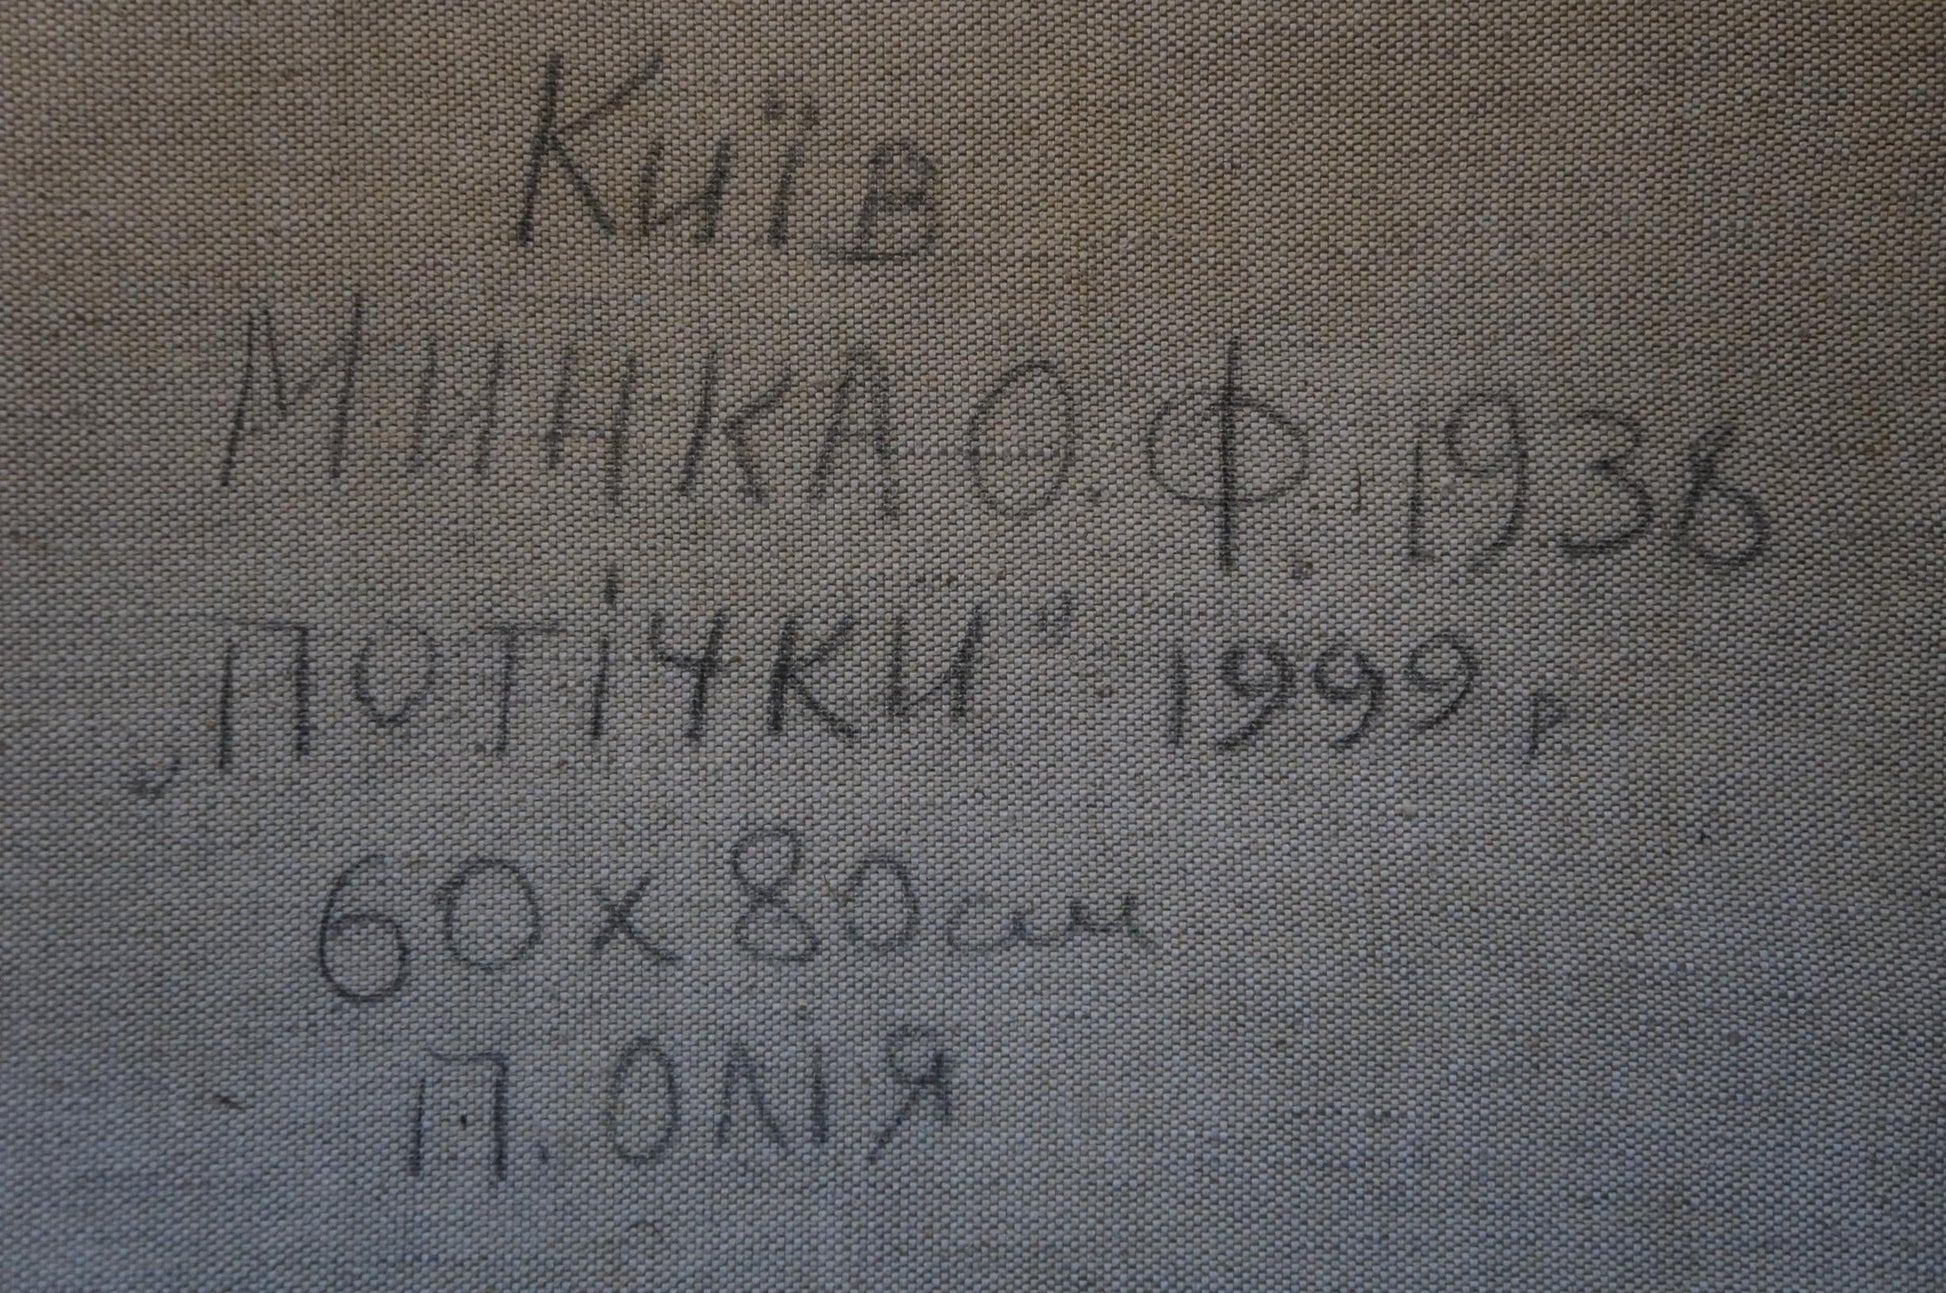 Київ
МИНКА О. Ф. 1938
„ПОТІЧКИ" 1999 р.
60 х 80 см
П. ОЛІЯ